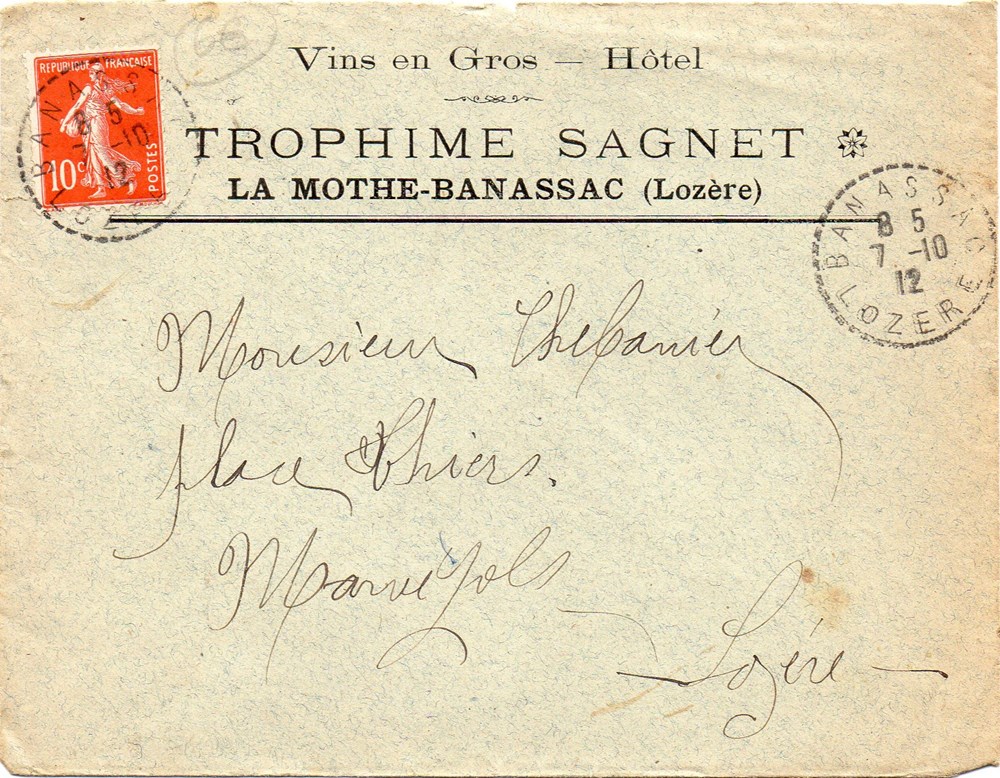 Vins en Gros — Hôtel
TROPHIME SAGNET
LA MOTHE-BANASSAC (Lozère)
REPUBLIQUE FRANÇAISE
10c POSTES
BANASSAC
8 5
-10
12
LOZERE
BANASSAC
8 5
7 -10
12
LOZERE
Monsieur
place Thiers.
Marvejols
— Lozére —